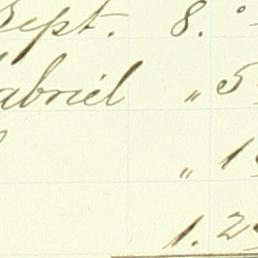 Sept. 8.
abriel " 5
" 1
1.2